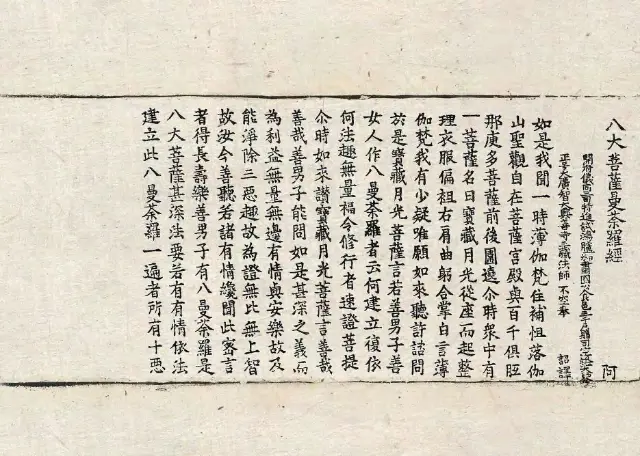 八大菩薩曼荼羅經
阿
開府儀同三司特進試鴻臚卿肅國公食邑三千戶賜紫贈司空
正大廣智大興善寺三藏沙門不空奉
詔譯
如是我聞一時薄伽梵住補怛落伽
山聖觀自在菩薩宮殿與百千俱胝
那庾多菩薩前後圍遶尒時衆中有
一菩薩名曰寶藏月光從座而起整
理衣服偏袒右肩曲躬合掌白言薄
伽梵我有少疑唯願如來聽許諮問
於是寶藏月光菩薩言若善男子善
女人作八曼荼羅者云何建立復依
何法趣無量福令修行者速證菩提
尒時如來讚寶藏月光菩薩言善哉
善哉善男子能問如是甚深之義而
為利益無量無邊有情與安樂故及
能淨除三惡趣故為證無比無上智
故汝今善聽若諸有情纔聞此密言
者得長壽樂善男子有八曼荼羅是
八大菩薩甚深法要若有有情依法
建立此八曼荼羅一遍者所有十惡